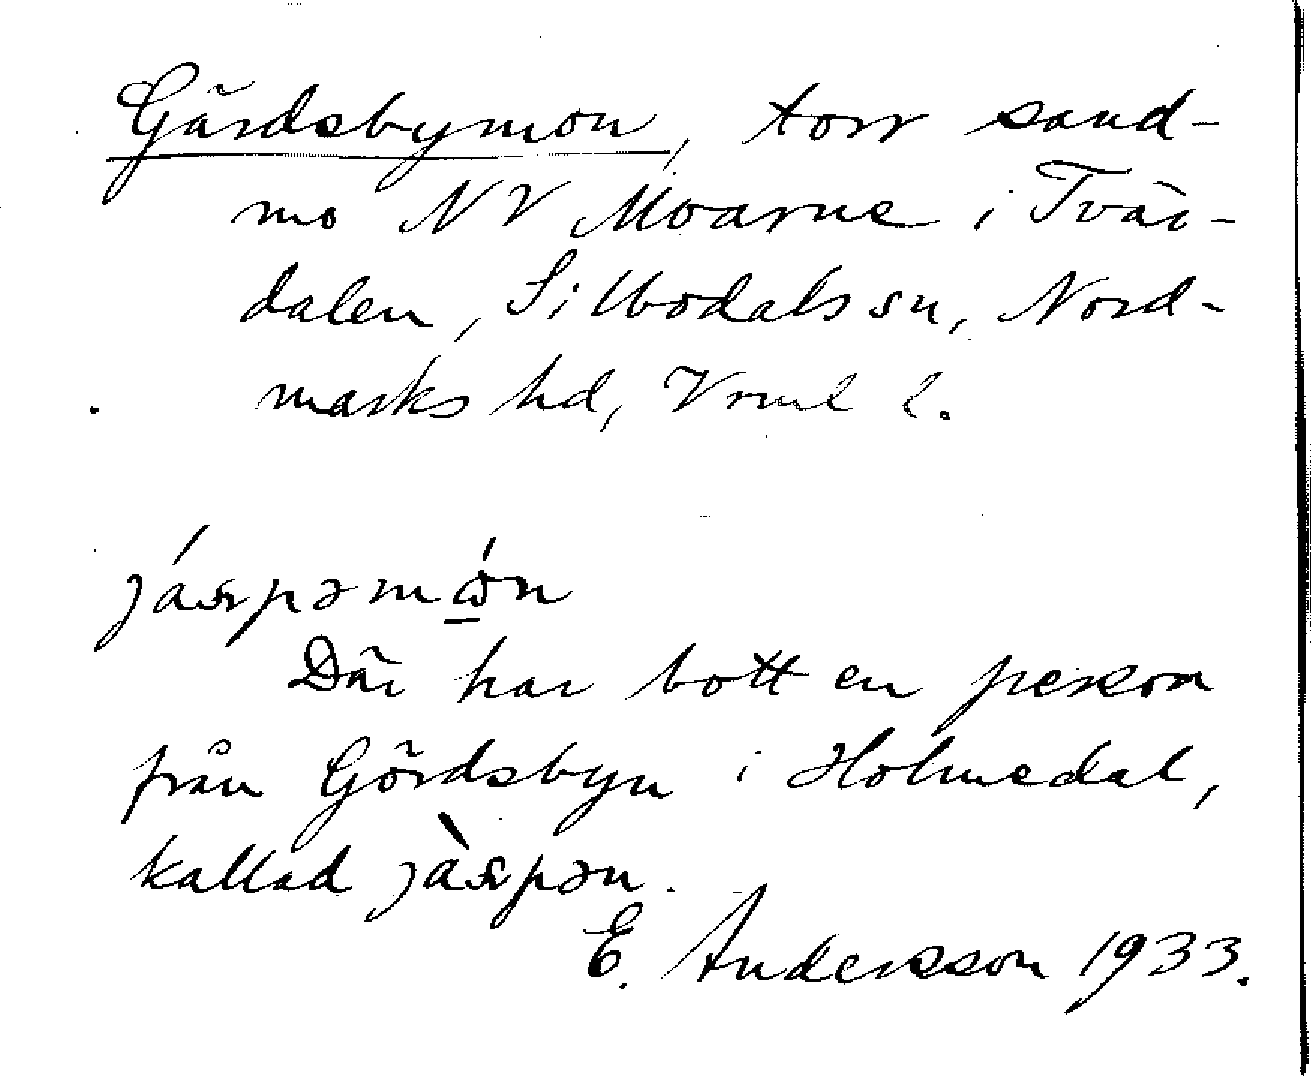 Gärdsbymon, torr sand-
mo NV Moarne i Tvär-
dalen, Sillbodals sn, Nord-
marks hd, Vrml l.
jáspəmω̂n
Där har bott en person
från Gördsbyn i Holmedal,
kallad jàspən.
E. Andersson 1933.